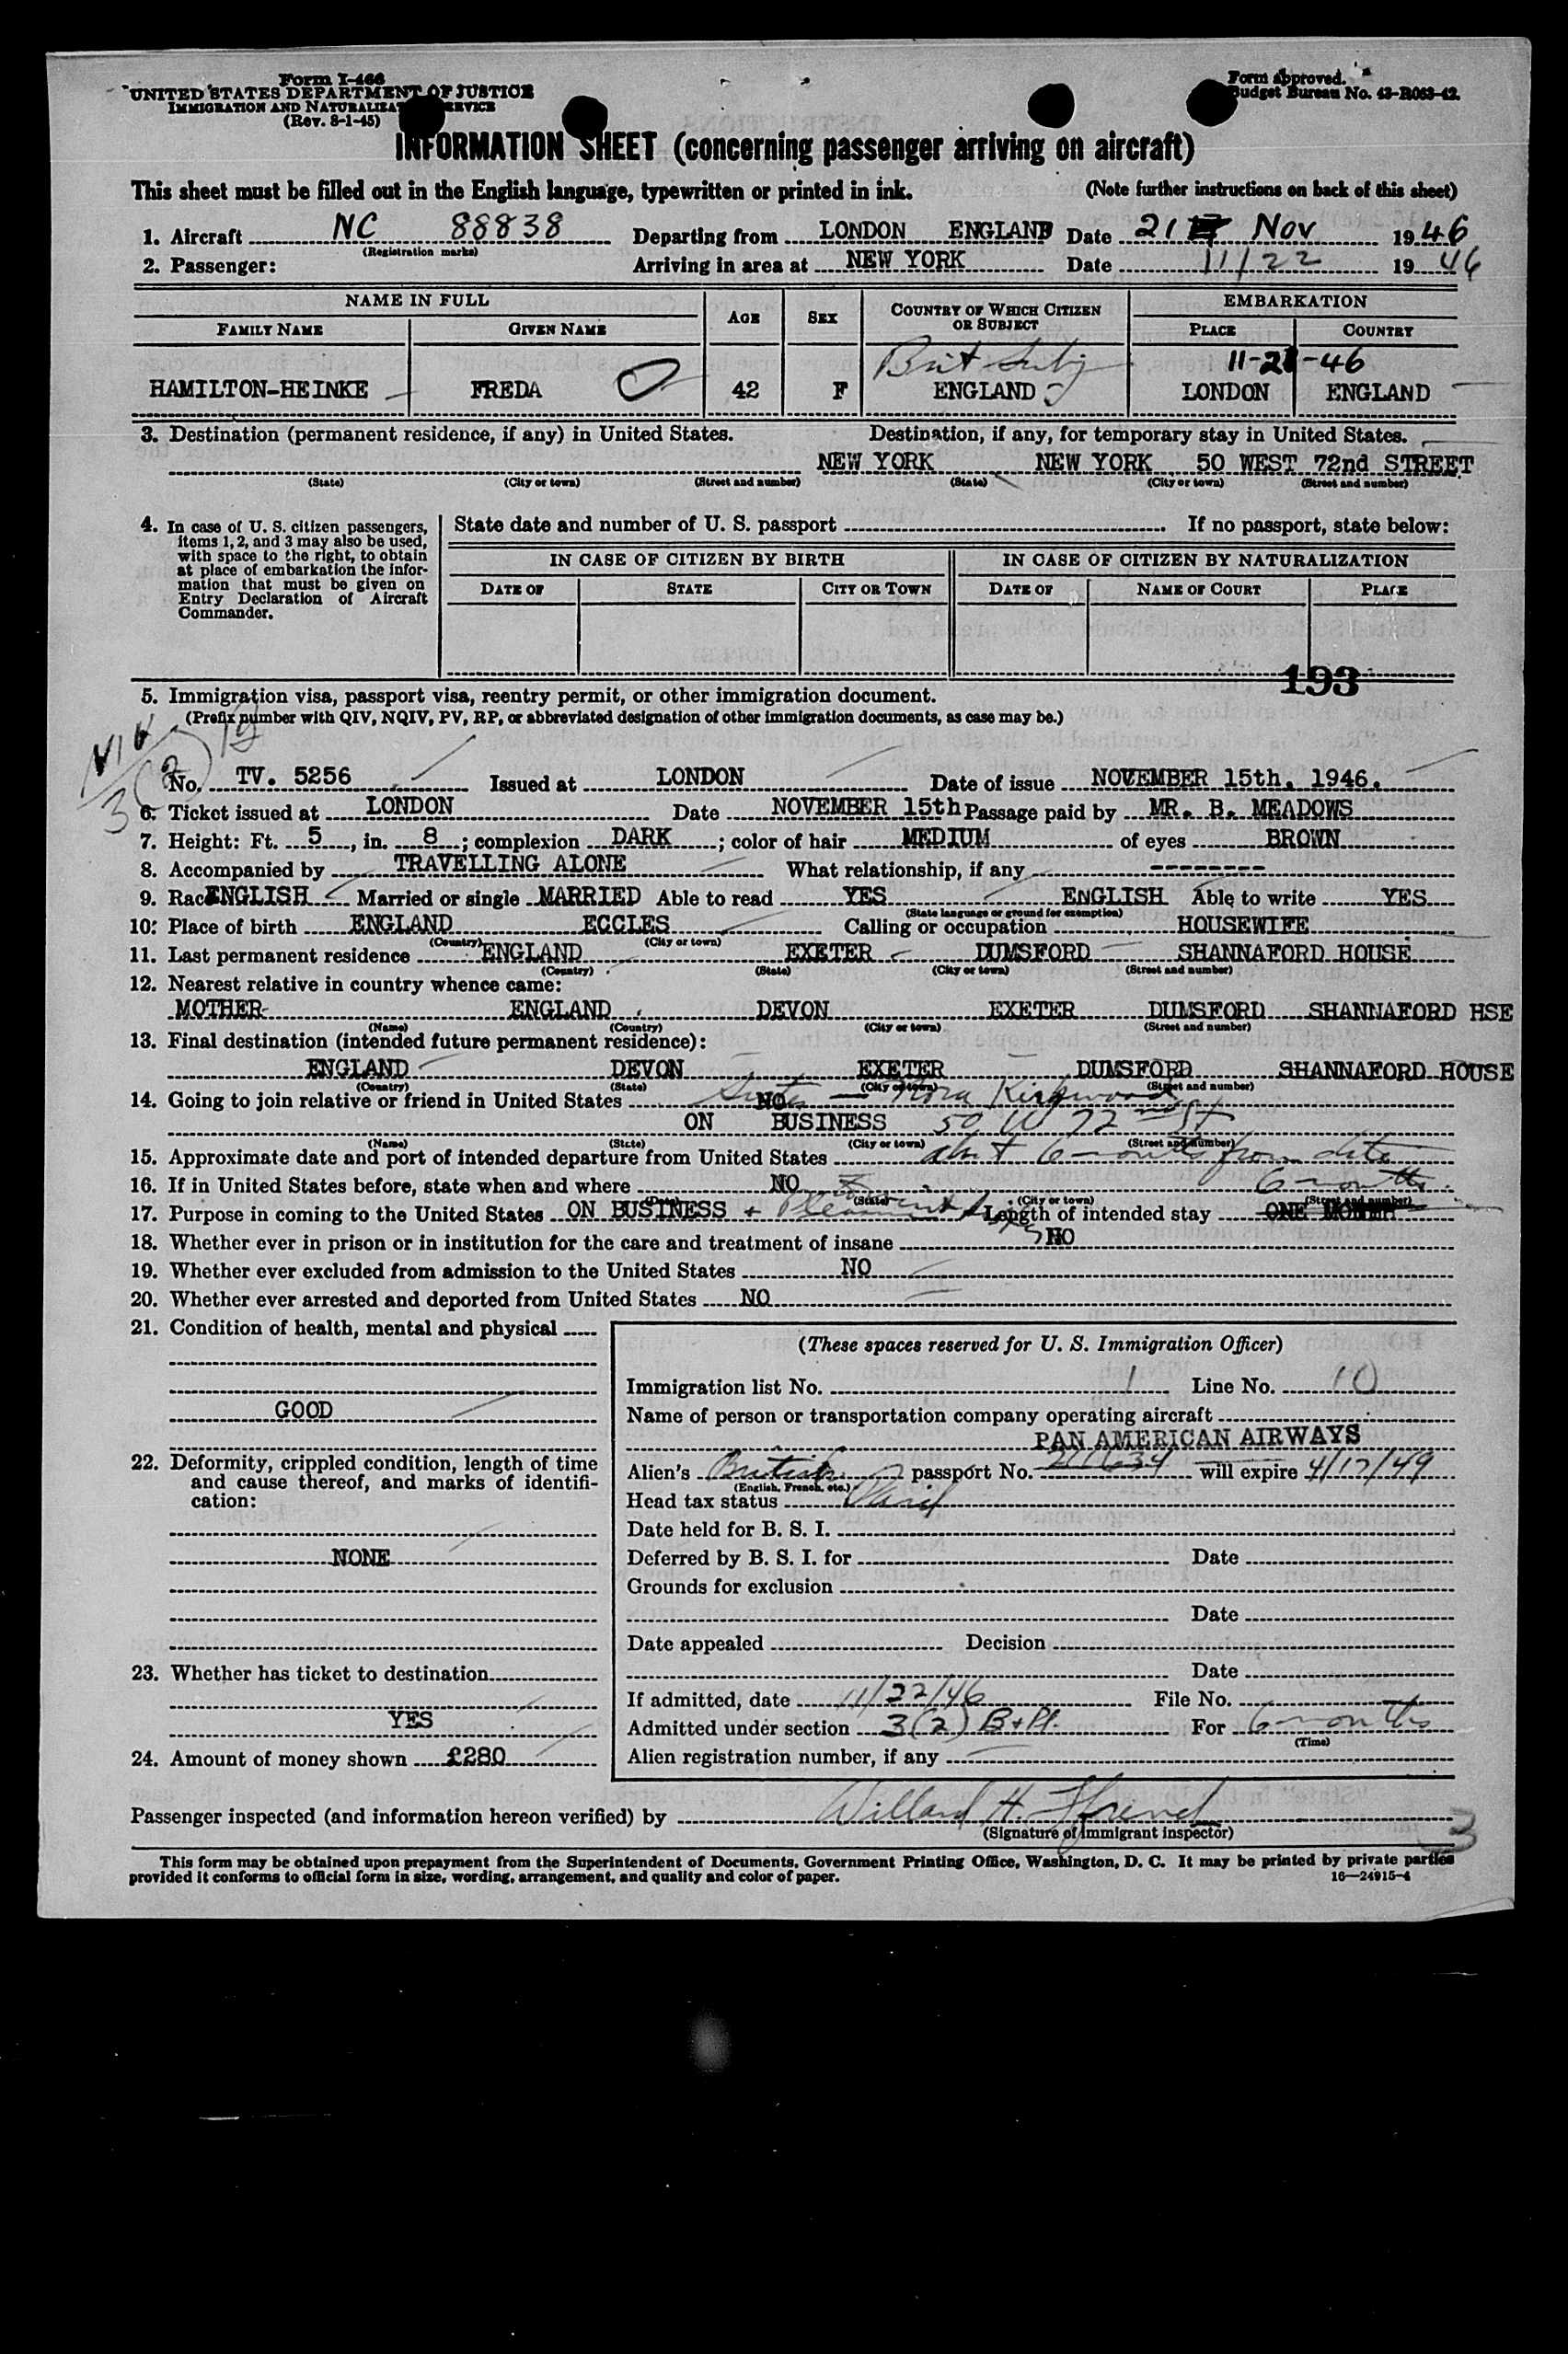 Form I-466
UNITED STATES DEPARTMENT OF JUSTICE
IMMIGRATION AND NATURALIZATION SERVICE
(Rev. 8-1-45)
Form approved.
Budget Bureau No. 43-R053-42.
INFORMATION SHEET (concerning passenger arriving on aircraft)
This sheet must be filled out in the English language, typewritten or printed in ink. (Note further instructions on back of this sheet)
1. Aircraft NC 88838 Departing from LONDON ENGLAND Date 21 Nov 1946
(Registration marks)
2. Passenger: Arriving in area at NEW YORK Date 11/22 1946
NAME IN FULL AGE SEX COUNTRY OF WHICH CITIZEN OR SUBJECT EMBARKATION
FAMILY NAME GIVEN NAME PLACE COUNTRY
Brit Subj 11-21-46
HAMILTON-HEINKE FREDA 42 F ENGLAND LONDON ENGLAND
3. Destination (permanent residence, if any) in United States. Destination, if any, for temporary stay in United States.
NEW YORK NEW YORK 50 WEST 72nd STREET
(State) (City or town) (Street and number) (State) (City or town) (Street and number)
4. In case of U. S. citizen passengers, items 1, 2, and 3 may also be used, with space to the right, to obtain at place of embarkation the information that must be given on Entry Declaration of Aircraft Commander.
State date and number of U. S. passport If no passport, state below:
IN CASE OF CITIZEN BY BIRTH IN CASE OF CITIZEN BY NATURALIZATION
DATE OF STATE CITY OR TOWN DATE OF NAME OF COURT PLACE
193
5. Immigration visa, passport visa, reentry permit, or other immigration document.
(Prefix number with QIV, NQIV, PV, RP, or abbreviated designation of other immigration documents, as case may be.)
3(2)
No. TV. 5256 Issued at LONDON Date of issue NOVEMBER 15th. 1946.
6. Ticket issued at LONDON Date NOVEMBER 15th Passage paid by MR. B. MEADOWS
7. Height: Ft. 5, in. 8; complexion DARK; color of hair MEDIUM of eyes BROWN
8. Accompanied by TRAVELLING ALONE What relationship, if any --------
9. Race ENGLISH Married or single MARRIED Able to read YES ENGLISH Able to write YES
(State language or ground for exemption)
10. Place of birth ENGLAND ECCLES Calling or occupation HOUSEWIFE
(Country) (City or town)
11. Last permanent residence ENGLAND EXETER DUMSFORD SHANNAFORD HOUSE
(Country) (State) (City or town) (Street and number)
12. Nearest relative in country whence came:
MOTHER ENGLAND DEVON EXETER DUMSFORD SHANNAFORD HSE
(Name) (Country) (City or town) (Street and number)
13. Final destination (intended future permanent residence):
ENGLAND DEVON EXETER DUMSFORD SHANNAFORD HOUSE
(Country) (State) (City or town) (Street and number)
14. Going to join relative or friend in United States NO Sister - Nora Kirkwood
ON BUSINESS 50 W 72nd St
(Name) (State) (City or town) (Street and number)
15. Approximate date and port of intended departure from United States abt 6 months from date
16. If in United States before, state when and where NO 6 months
(Date) (State) (City or town) (Street and number)
17. Purpose in coming to the United States ON BUSINESS + Length of intended stay ONE MONTH
18. Whether ever in prison or in institution for the care and treatment of insane NO
19. Whether ever excluded from admission to the United States NO
20. Whether ever arrested and deported from United States NO
21. Condition of health, mental and physical
GOOD
22. Deformity, crippled condition, length of time and cause thereof, and marks of identification:
NONE
23. Whether has ticket to destination
YES
24. Amount of money shown £280
(These spaces reserved for U. S. Immigration Officer)
Immigration list No. 1 Line No. 10
Name of person or transportation company operating aircraft
PAN AMERICAN AIRWAYS
Alien's British passport No. will expire 4/17/49
(English, French, etc.)
Head tax status Paid
Date held for B. S. I.
Deferred by B. S. I. for Date
Grounds for exclusion
Date
Date appealed Decision
Date
If admitted, date 11/22/46 File No.
Admitted under section 3(2) B+Pl. For 6 months
(Time)
Alien registration number, if any
Passenger inspected (and information hereon verified) by Willard H.
(Signature of immigrant inspector)
3
This form may be obtained upon prepayment from the Superintendent of Documents, Government Printing Office, Washington, D. C. It may be printed by private parties
provided it conforms to official form in size, wording, arrangement, and quality and color of paper. 16—24915-4